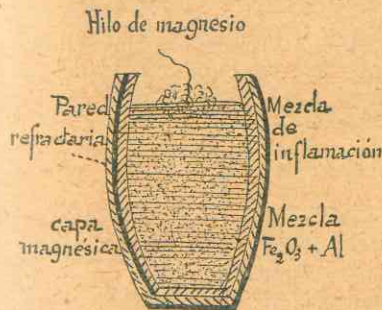 Hilo de magnesio
Pared
refractaria
Mezcla
de
inflamación
capa
magnésica
Mezcla
Fe₂O₃ + Al